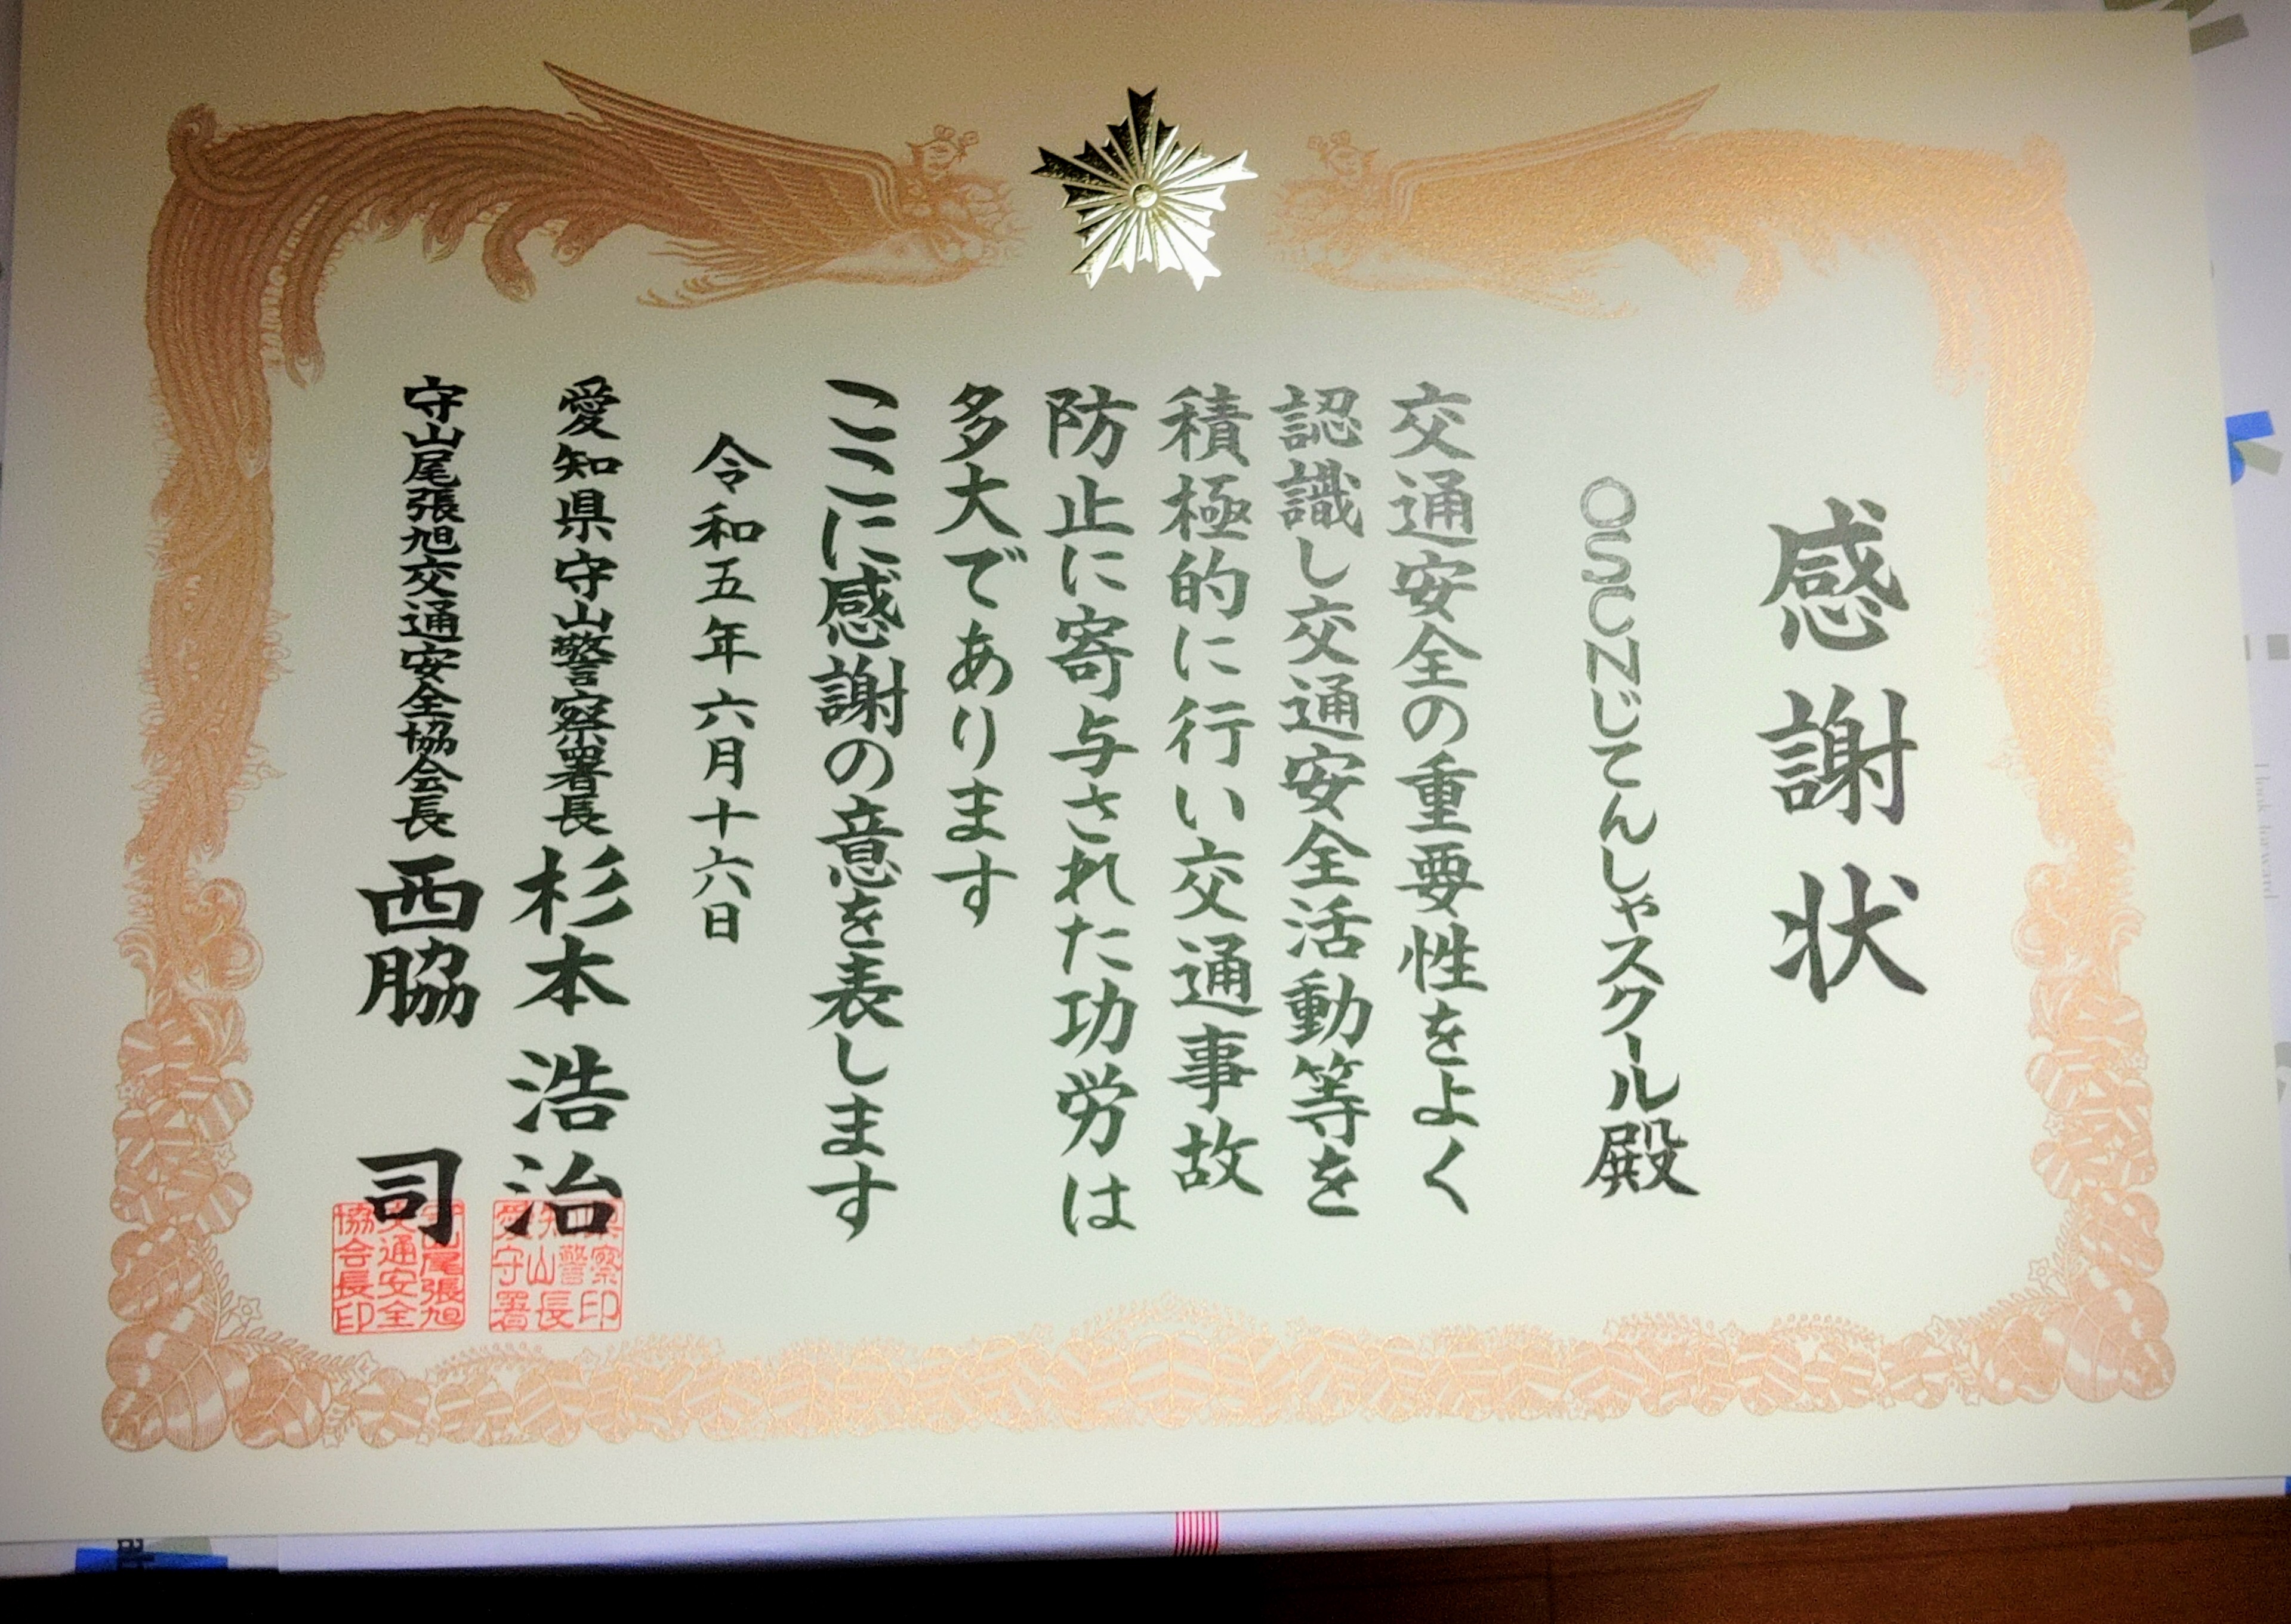 感謝状
OSCNじてんしゃスクール殿
交通安全の重要性をよく
認識し交通安全活動等を
積極的に行い交通事故
防止に寄与された功労は
多大であります
ここに感謝の意を表します
令和五年六月十六日
愛知県守山警察署長 杉本浩治
守山尾張旭交通安全協会長 西脇 司